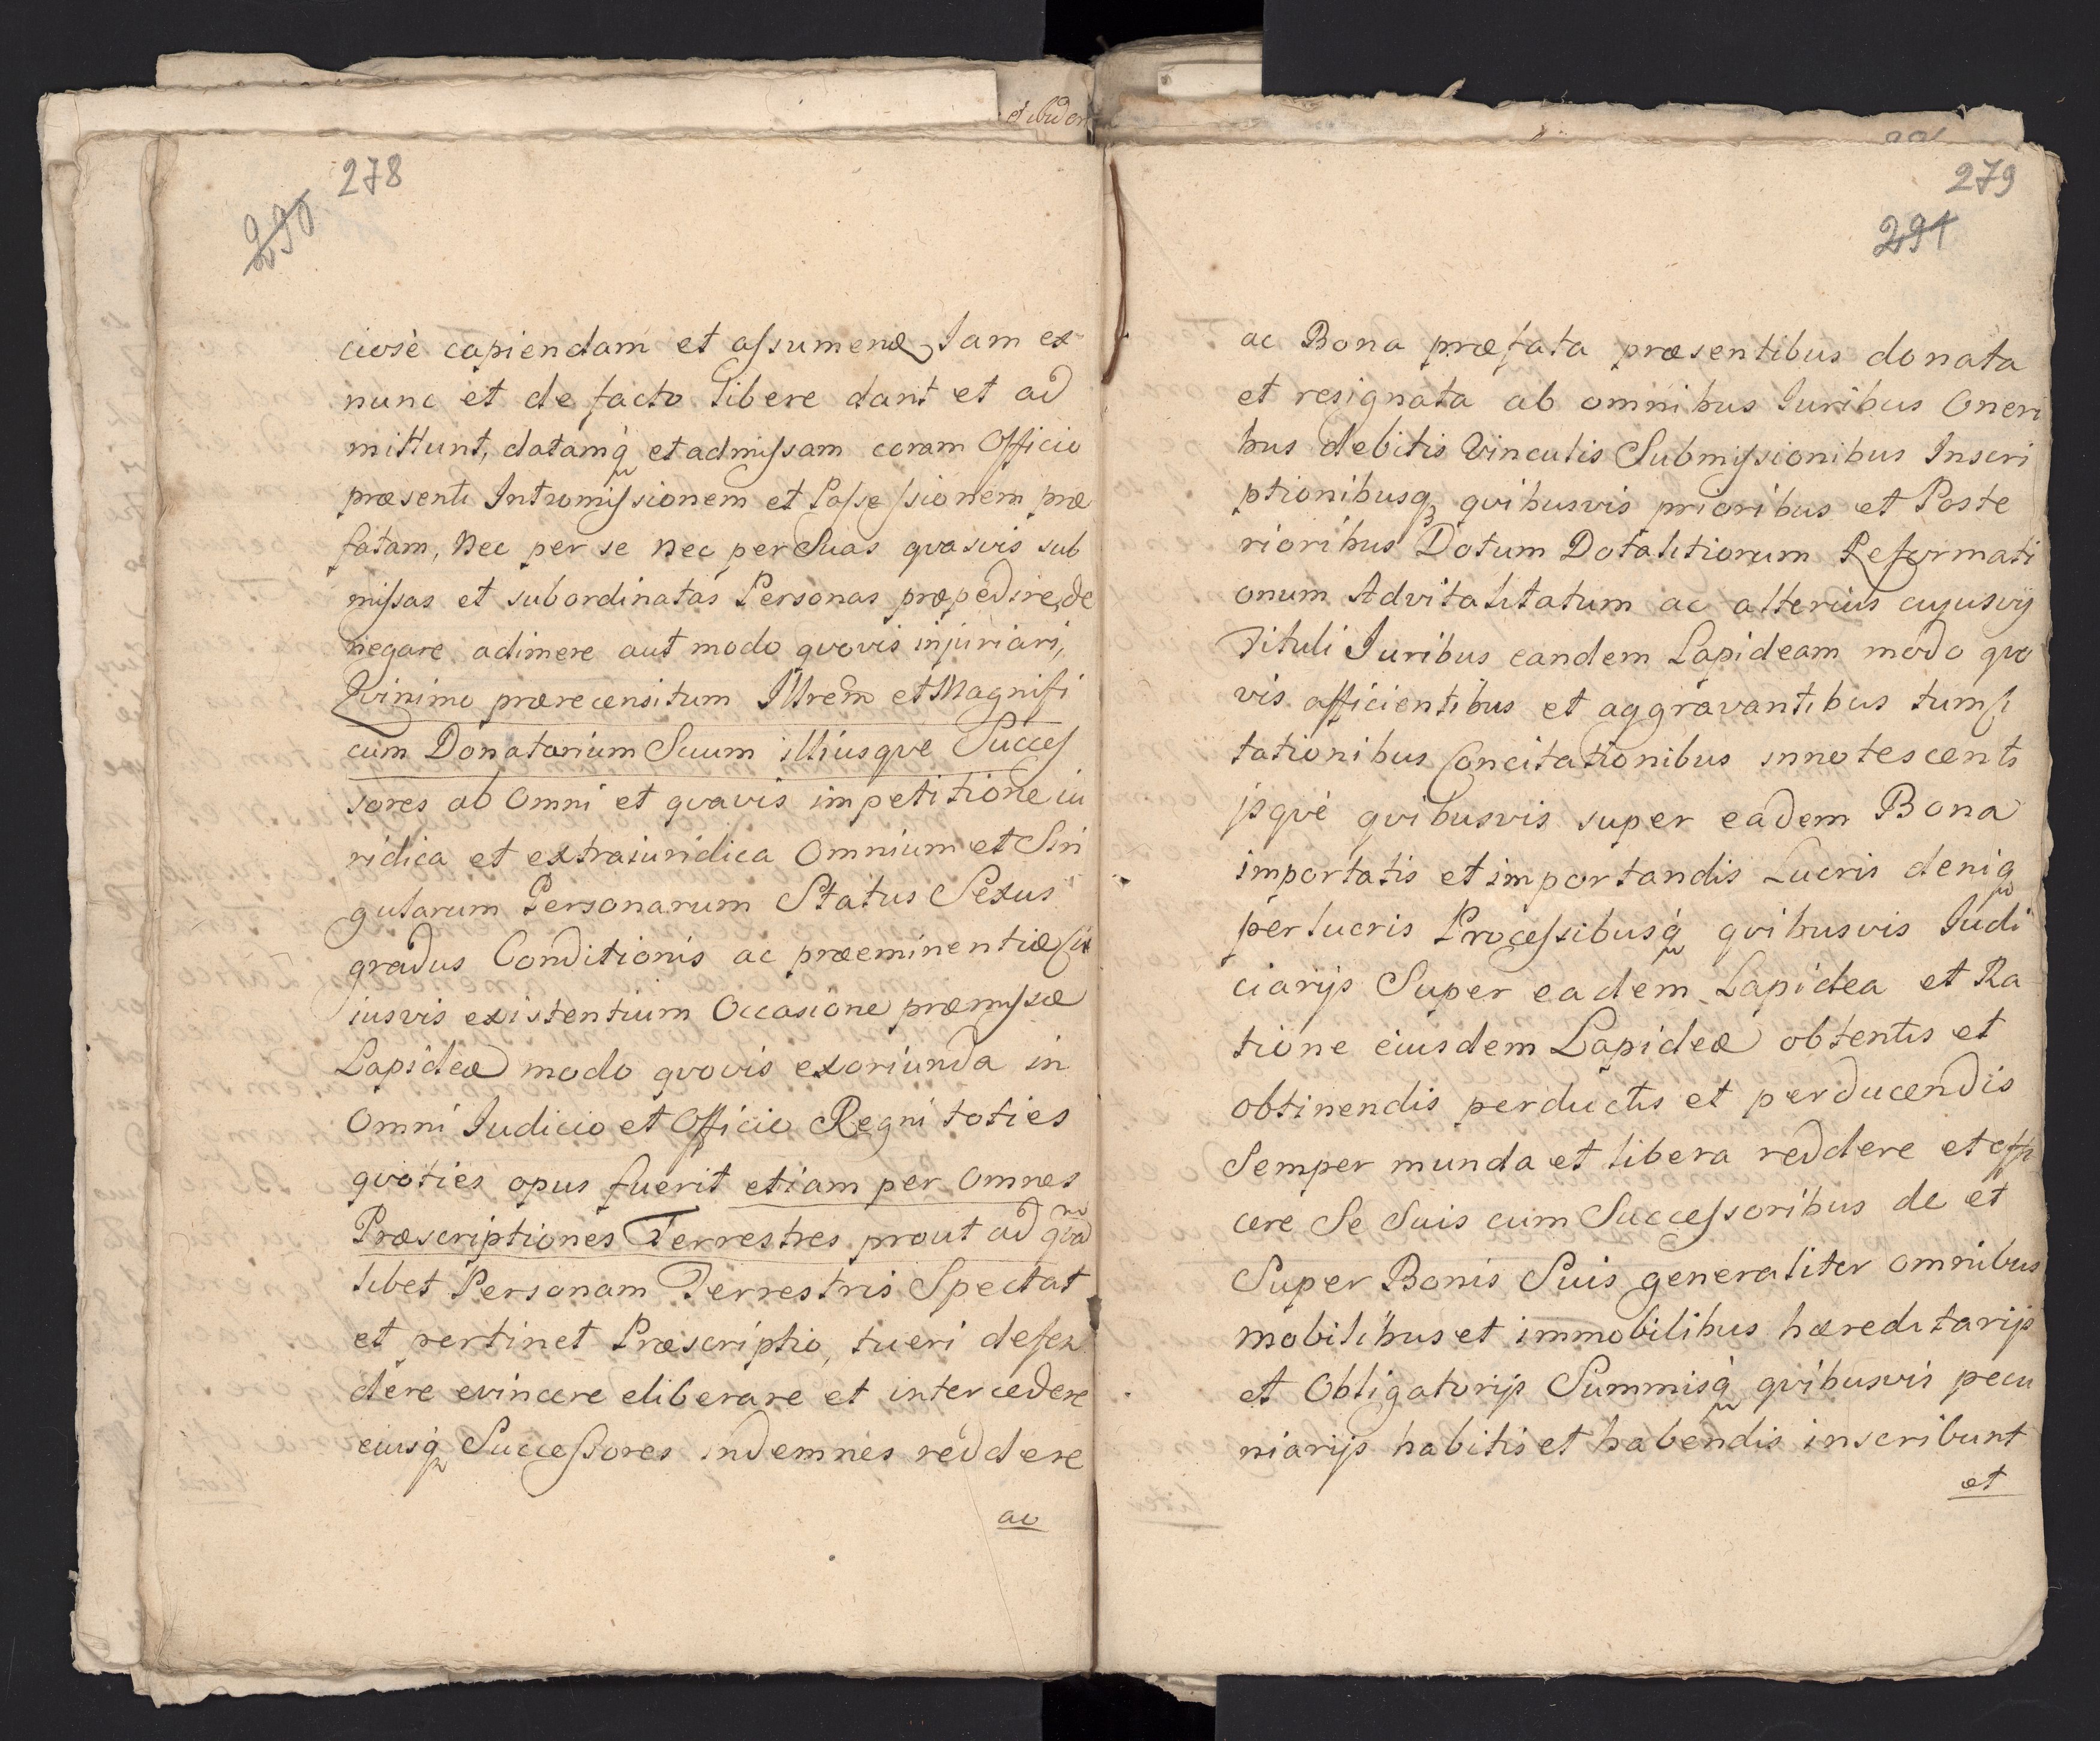 278
290
ciosè capiendam et assumend. Iam ex
nunc et de facto libere dant et ad
mittunt, datamq́ et admissam coram Officio
præsenti Intromissionem et Possessionem præ
fatam, Nec per se Nec per Suas qvasvis sub
missas et subordinatas Personas præpedire, de
negare adimere aut modo qvovis injuriari,
Qvinimo prærecensitum Illrem et Magnifi
cum Donatarium Suum illiusqve Succes
sores ab Omni et qvavis impetitione iu
ridica et extraiuridica Omnium et Sin
gularum Personarum Status Sexus
gradus Conditionis ac præeminentiæ Cu
iusvis existentium Occasione præmissæ
Lapideæ modo qvovis exoriunda in
Omni Iudicio et Officio Regni toties
qvoties opus fuerit etiam per Omnes
Præscriptiones Terrestres prout ad qvam
libet Personam Terrestris Spectat
et pertinet Præscriptio, tueri defen
dere evincere eliberare et intercedere
eiusq́ Successores indemnes reddere
ac
279
291
ac Bona præfata præsentibus donata
et resignata ab omnibus Iuribus Oneri
bus debitis Vinculis Submissionibus Inscri
ptionibusq́ qvibusvis prioribus et Poste
rioribus Dotum Dotalitiorum Reformati
onum Advitalitatum ac alterius cujusvis
Tituli Iuribus eandem Lapideam modo qvo
vis afficientibus et aggravantibus tum Ci
tationibus Concitationibus innotescenti
jsqvè qvibusvis super eadem Bona
importatis et importandis Lucris deniq́
perlucris Processibusq́ qvibusvis Iudi
ciarijs Super eadem Lapidea et Ra
tione eiusdem Lapideæ obtentis et
obtinendis perductis et perducendis
Semper munda et libera reddere et effi
cere Se Suis cum Successoribus de et
Super Bonis Suis generaliter omnibus
mobilibus et immobilibus hæreditarijs
et Obligatorijs Summisq́ qvibusvis pecu
niarijs habitis et habendis inscribunt
et